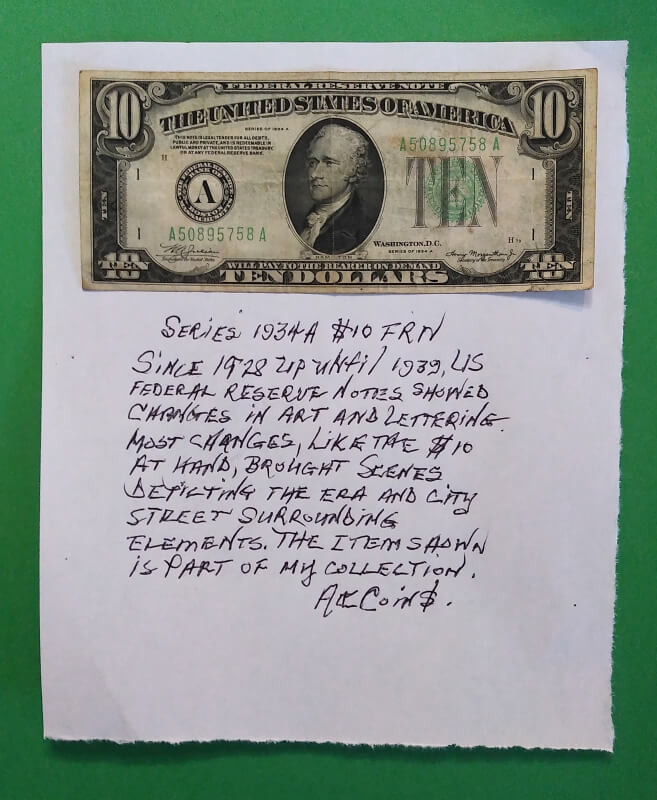 FEDERAL RESERVE NOTE
10 THE UNITED STATES OF AMERICA 10
SERIES OF 1934 A
THIS NOTE IS LEGAL TENDER FOR ALL DEBTS,
PUBLIC AND PRIVATE, AND IS REDEEMABLE IN
LAWFUL MONEY AT THE UNITED STATES TREASURY,
OR AT ANY FEDERAL RESERVE BANK.
A50895758 A
H
1 1
TEN TEN TEN
A
1 1
A50895758 A
WASHINGTON, D.C.
H
SERIES OF 1934 A
HAMILTON
WILL PAY TO THE BEARER ON DEMAND
10 TEN TEN DOLLARS 10 TEN
SERIES 1934A $10 FRN
SINCE 1928 UP UNTIL 1939, US
FEDERAL RESERVE NOTES SHOWED
CHANGES IN ART AND LETTERING.
MOST CHANGES, LIKE THE $10
AT HAND, BROUGHT SCENES
DEPICTING THE ERA AND CITY
STREET SURROUNDING
ELEMENTS. THE ITEM SHOWN
IS PART OF MY COLLECTION.
AKCoin$.